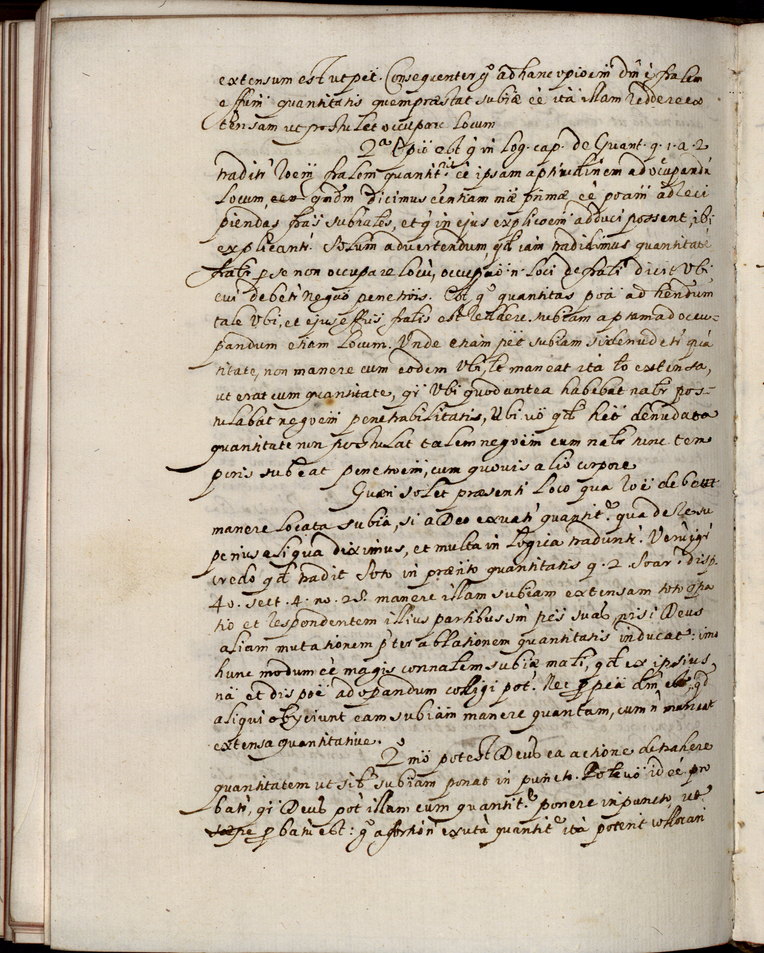 extensum est ut pet. Consequenter g° ad hanc opioem dm ē fralem
effum quantitatis quem præstat subiæ ēē ità illam reddere ex
tensam ut postulet occupare Locum
2ª opio est q̄ in Log. cap. de Quant. q. 1. a. 2
tradit roem fralem quantit. ēē ipsam aptitudinem ad occupandū
Locum, quadm dicimus centiam mæ primæ ēē poam ad reci
piendas fras subiales, et q̄ in ejus explicoem adduci possent, ibi
explicant. Solum advertendum, qd iam tradidimus quantitate
frali p se non occupare Locū, occupao n Loci de frali dicit Ubi
cui debeti nego penetris. Est g° quantitas poa ad hendum
tale Ubi, et ejus effus fralis est reddere subiam aptam ad occu-
pandum etiam Locum. Unde etiam pet subiam si denudeti quā
titate, non manere cum eodem Ubi, Lt maneat ità Lo extensa,
ut erat cum quantitate, qi Ubi quod antea habebat nabr pos-
tulabat negoem penetrabilitatis, Ubi uō qd het denudata
quantitate non postulat talem negoem cum nabr tunc tem
poris subeat penetroem, cum quovis alio corpore
Quæri solet præsenti Loco qua roē debeat
manere Locata subia, si a Deo exuati quantit. qua de re su
perius aliqua diximus, et multa in Logica tradunt. Verū igi
credo qd tradit Soto in prænto quantitatis q. 2. Soar. disp.
40. sect. 4. no. 28. manere illam subiam extensam toto spa
tio et respondentem illius partibus sm pes suas, nisi Deus
aliam mutationem pter ablationem quantitatis inducat: imo
hunc modum ēē magis connalem subiæ mali, qd ex ipsius
nā et dispoē ad opandum colligi pot. Nec p pea dm, qd
aliqui obijciunt eam subiam manere quantam, cum n maneat
extensa quantitative.
2° mō potest Deus ea actione detrahere
quantitatem ut sibi subiam ponat in puncto. Potē uō id ēē pro
bati, qi Deus pot illam cum quantit. ponere in puncto, ut
p batū est: g° a fortiori exutà quantit. ità poterit collocari